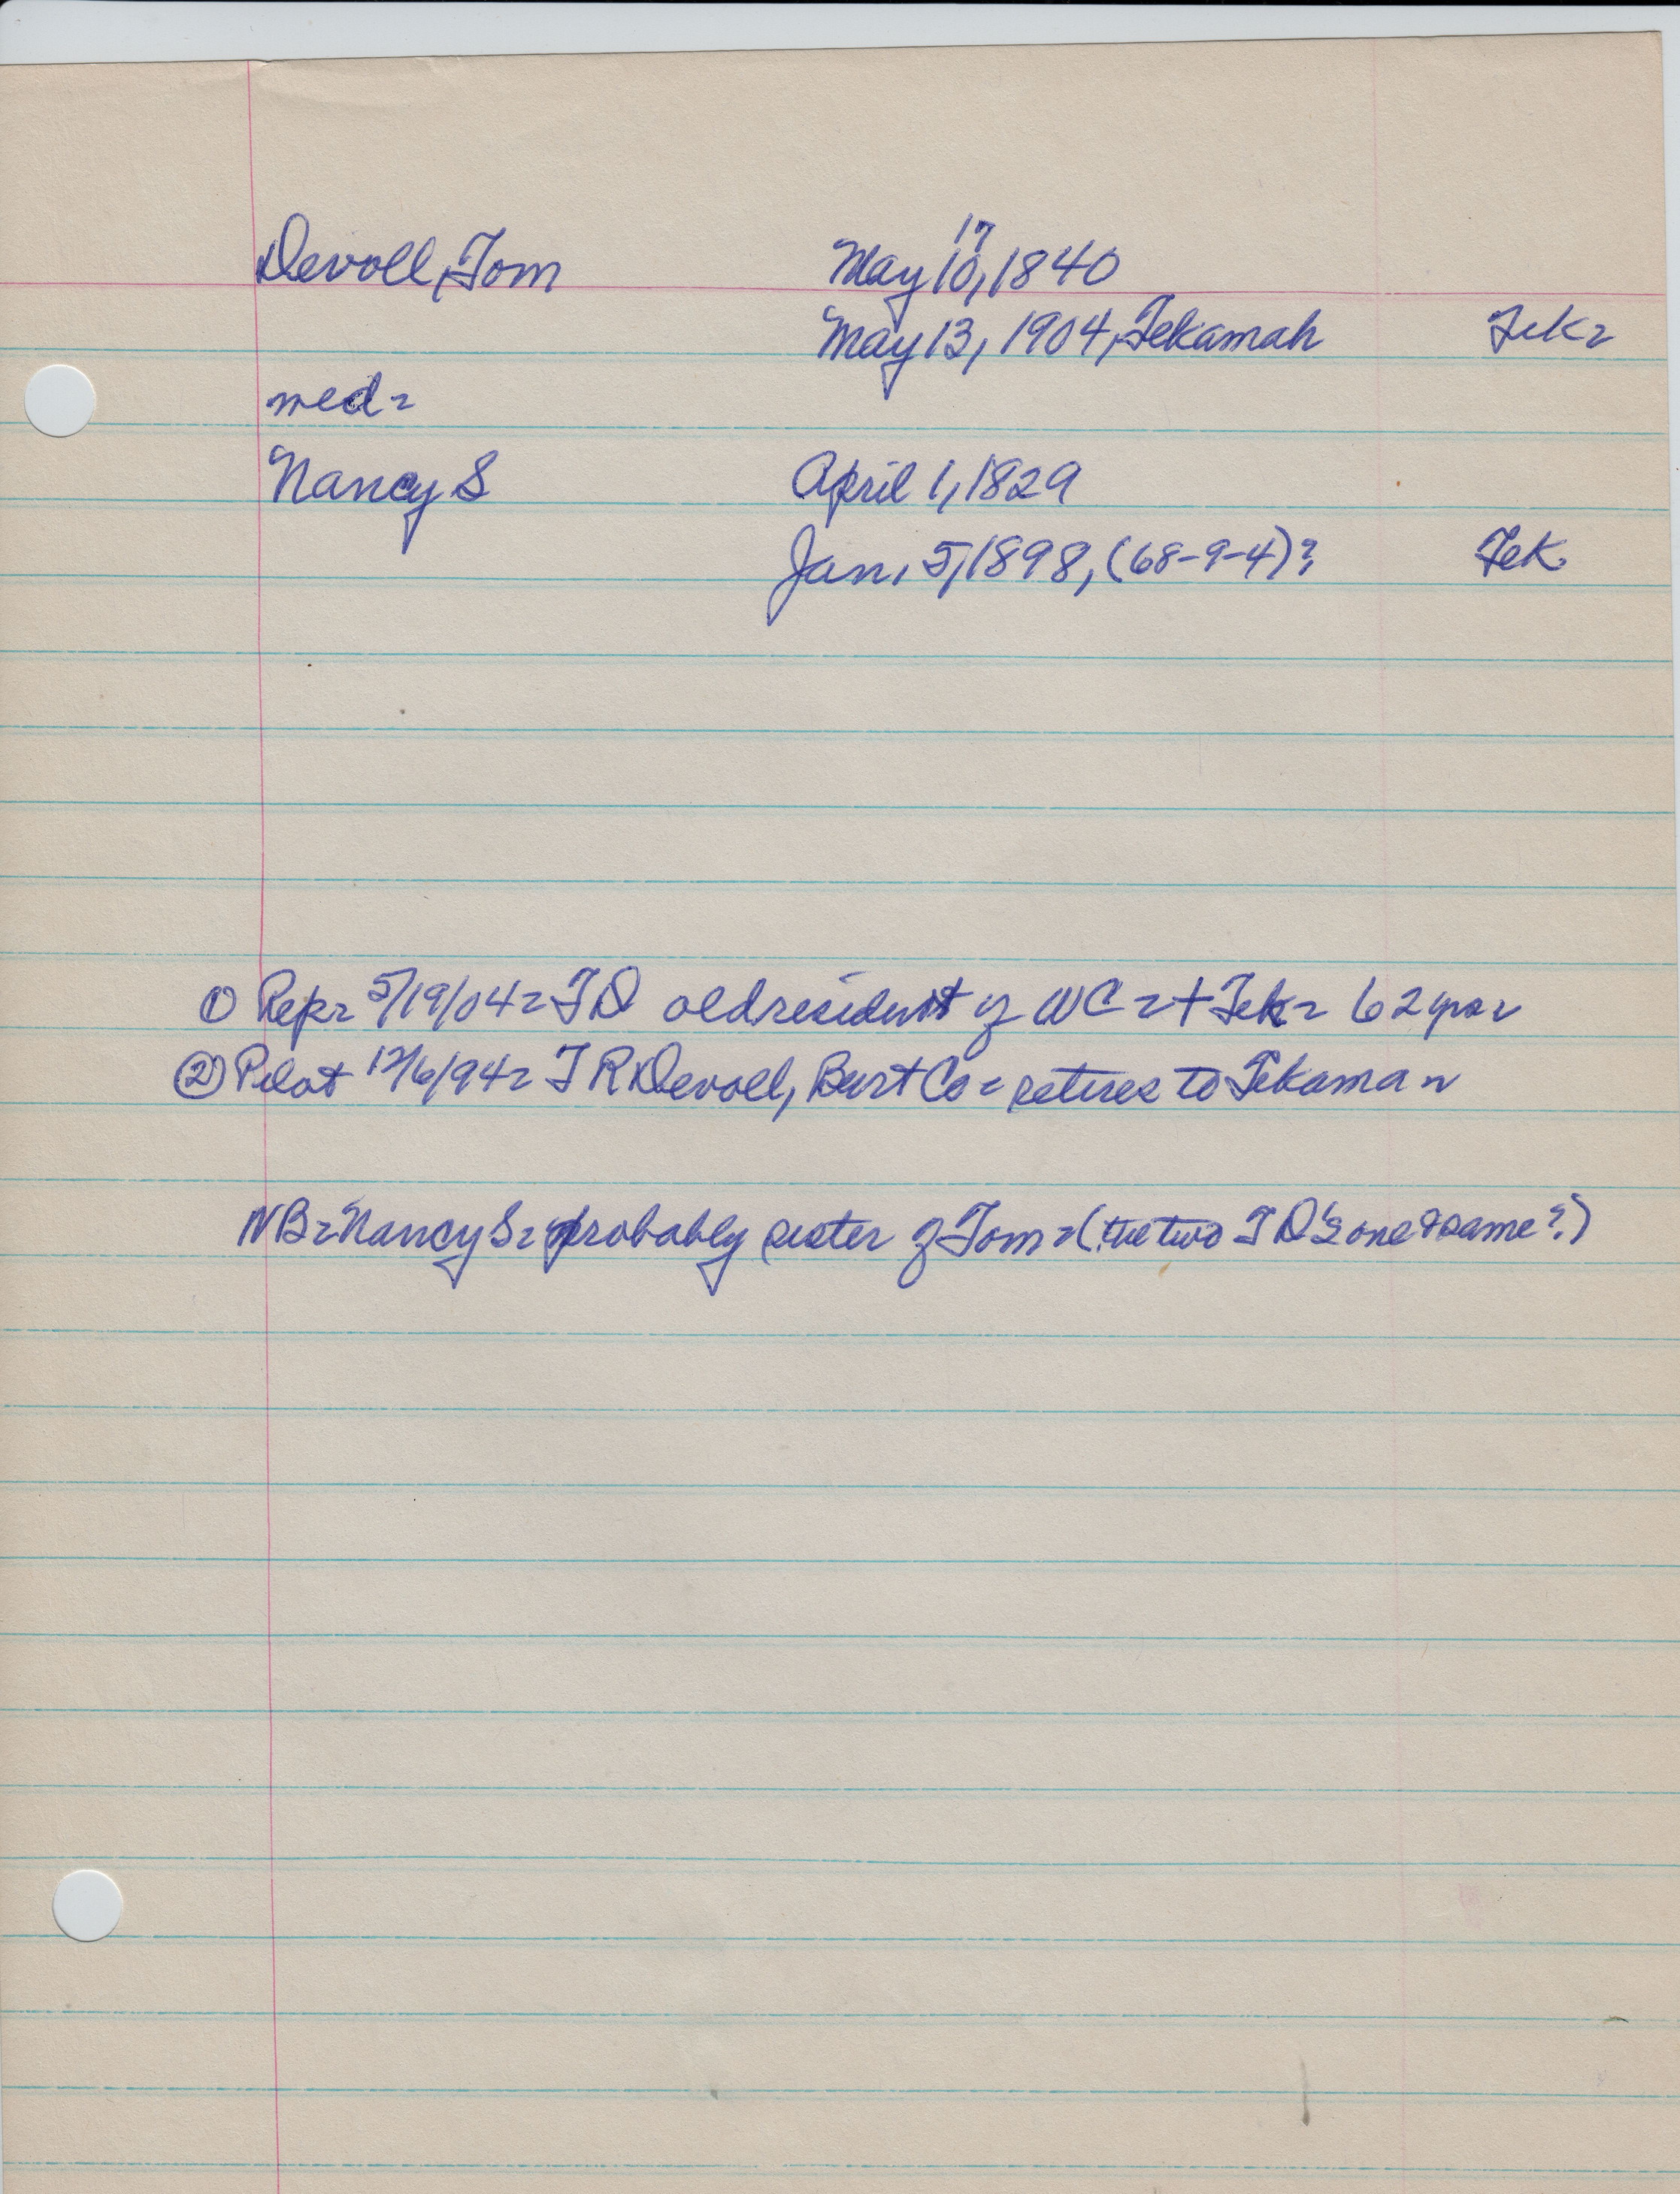 Devoll, Tom May 10, 1840
17
May 13, 1904, Tekamah Tek=
med=
Nancy S April 1, 1829
Jan, 5, 1898, (68-9-4)? Tek.
① Rep= 5/19/04= T D old resident of WC=+ Tek= 62 yrs=
② Pilot 12/6/94= T R Devoll, Burt Co= retires to Tekama=
NB= Nancy S= probably sister of Tom=(the two T D's one & same?)